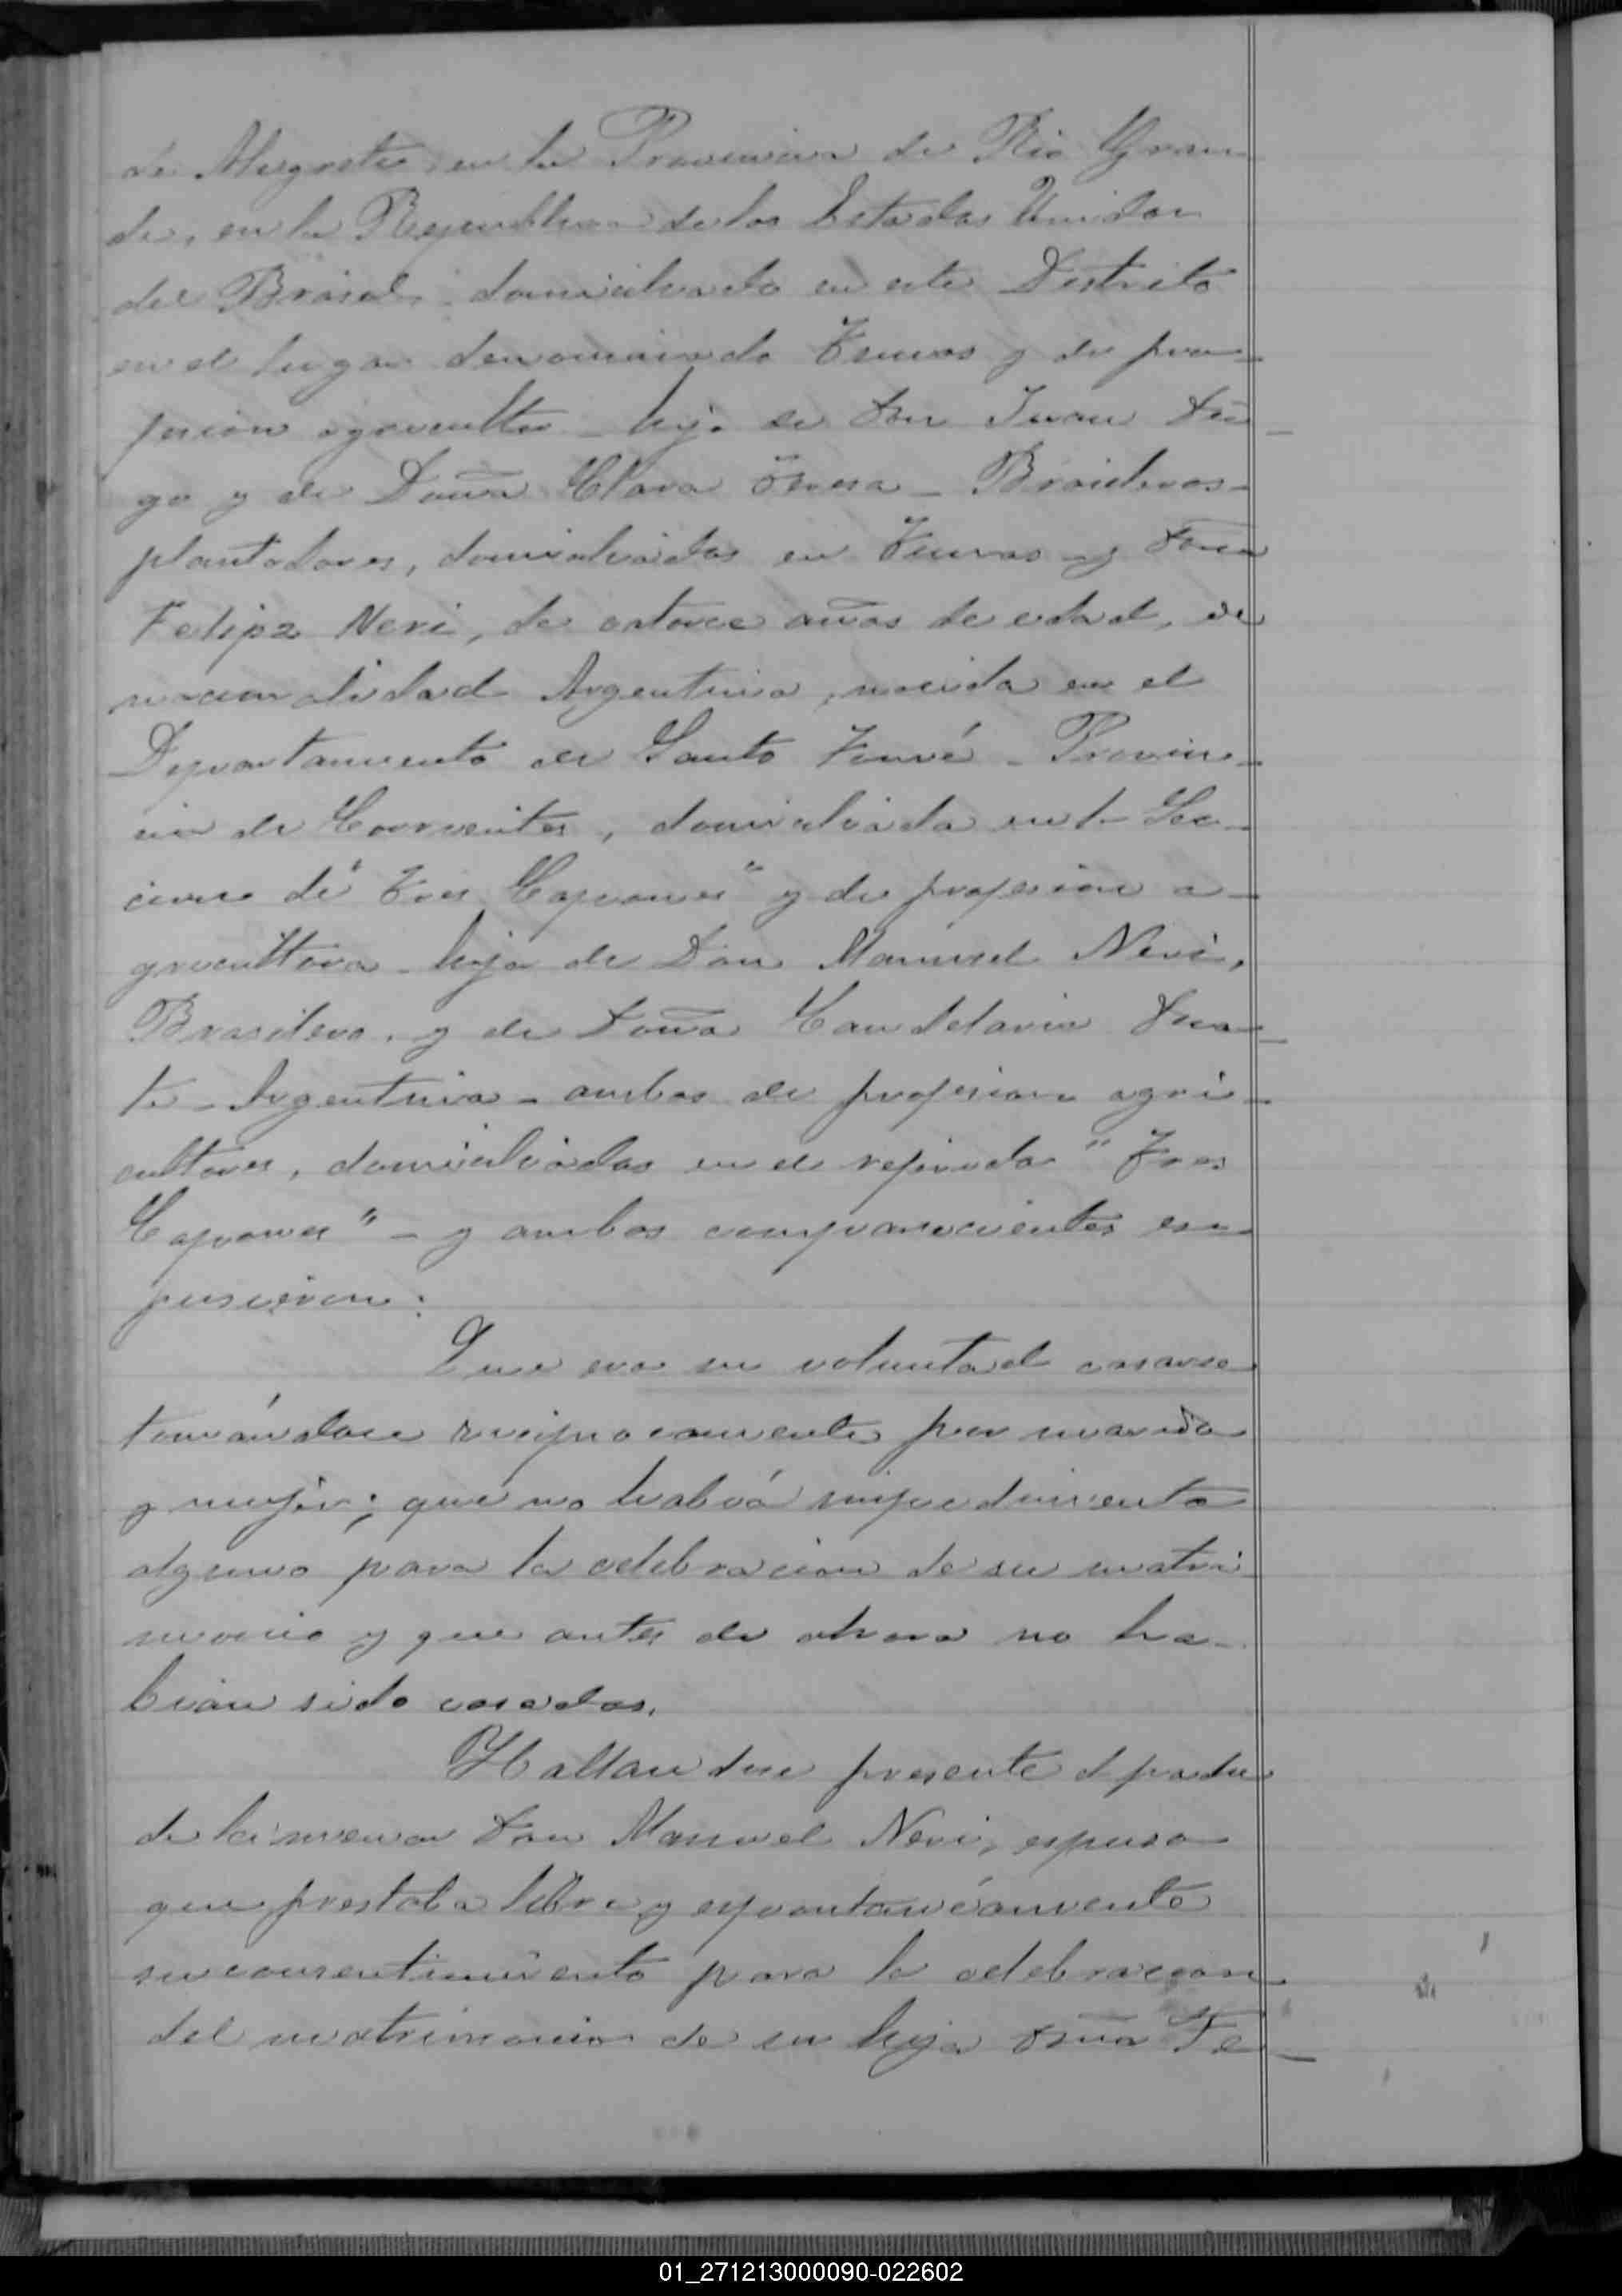 de Alegrete en la Provincia de Rio Gran-
de, en la Republica de los Estados Unidos
del Brasil, domiciliado en este Distrito
en el lugar denominado y de pro-
fesion agricultor - hijo de Don Juan
y de Doña Clara - Brasileros -
plantadores, domiciliados en y Doña
Felipa Neri, de catorce años de edad, de
nacionalidad Argentina, nacida en el
Departamento de Santo Tomé - Provin-
cia de Corrientes, domiciliada en la Sec-
cion de "Tres Capones" y de profesion a-
gricultora - hija de Don Manuel Neri,
Brasilero, y de Doña Candelaria
Argentina - ambos de profesion agri-
cultores, domiciliados en el referido "Tres
Capones" - y ambos comparecientes es-
pusieron:
Que era su voluntad casarse
tomándose reciprocamente por marido
y mujer; que no habiá impedimento
alguno para la celebracion de su matri-
monio y que antes de ahora no ha-
bian sido casados.
Hallandose presente el padre
de la menor Don Manuel Neri, espuso
que prestaba libre y espontanéamente
su consentimiento para la celebracion
del matrimonio de su hija Doña Fe-
01_271213000090-022602